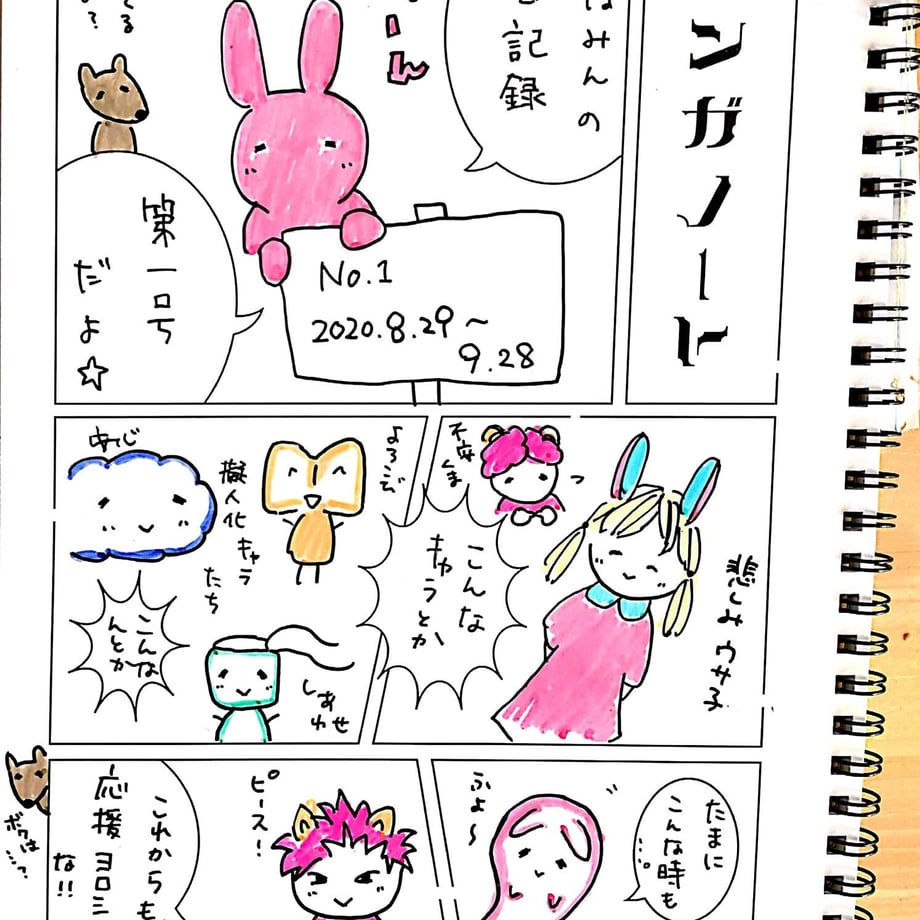 ンガノート
はみんの
記録
ーん
てる
？
No.1
2020.8.29〜
9.28
第一号
だよ☆
悲しみウサ子
不安くま
こんな
キャラとか
よろこび
擬人化キャラ
たち
あんじ
こんな
んとか
しあわせ
たまに
こんな時も
……
ふよ〜
ピース！
これからも
応援ヨロシ
な!!
ボクは
…？